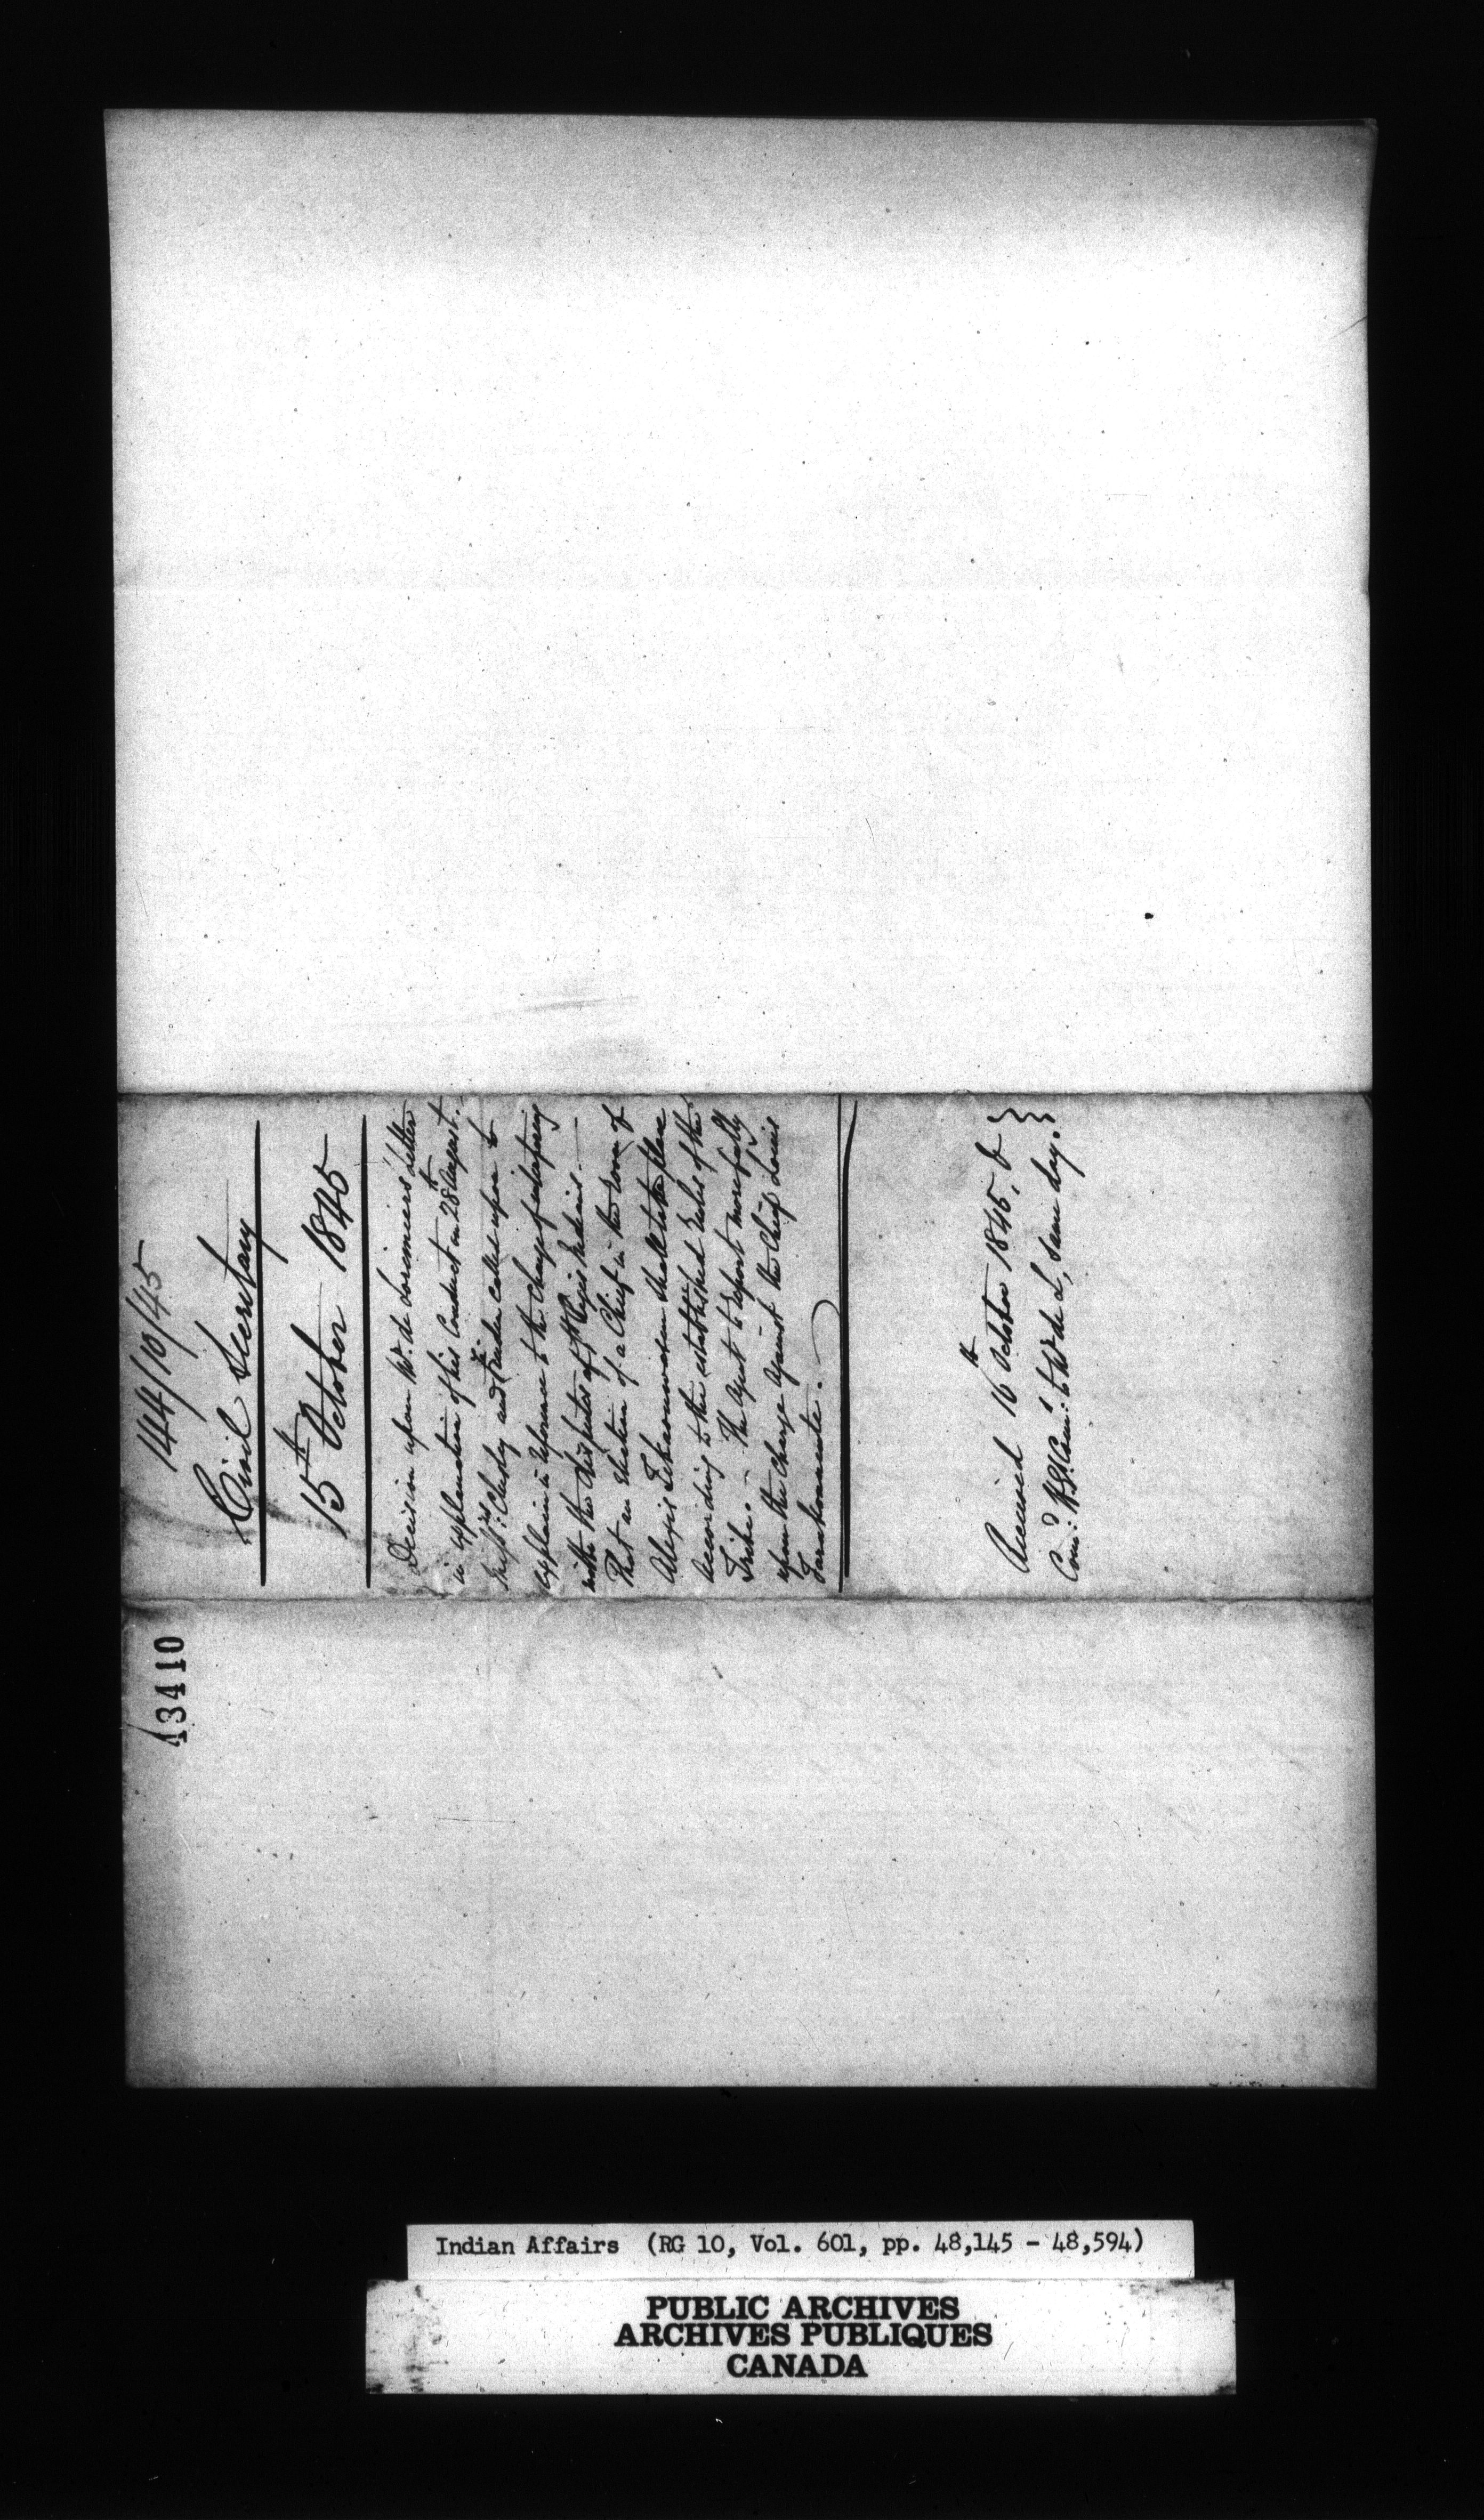 144/10/45
Civil Secretary
15th October 1845
Decision upon Mr. de Lorimier's Letter
in explanation of his Conduct on 28th August.
Messrs: Chesley and called upon to
explain in reference to the charge of interfering
with the disputes of St Regis Indians.—
That an election of a Chief in the room of
Alexis shall take place
according to the established rules of the
Tribe.— The Agent to report more fully
upon the charge against the Chief Louis
Received 16th October 1845.
Comd: to Mr de L, same day.
43410
Indian Affairs (RG 10, Vol. 601, pp. 48,145 - 48,594)
PUBLIC ARCHIVES
ARCHIVES PUBLIQUES
CANADA